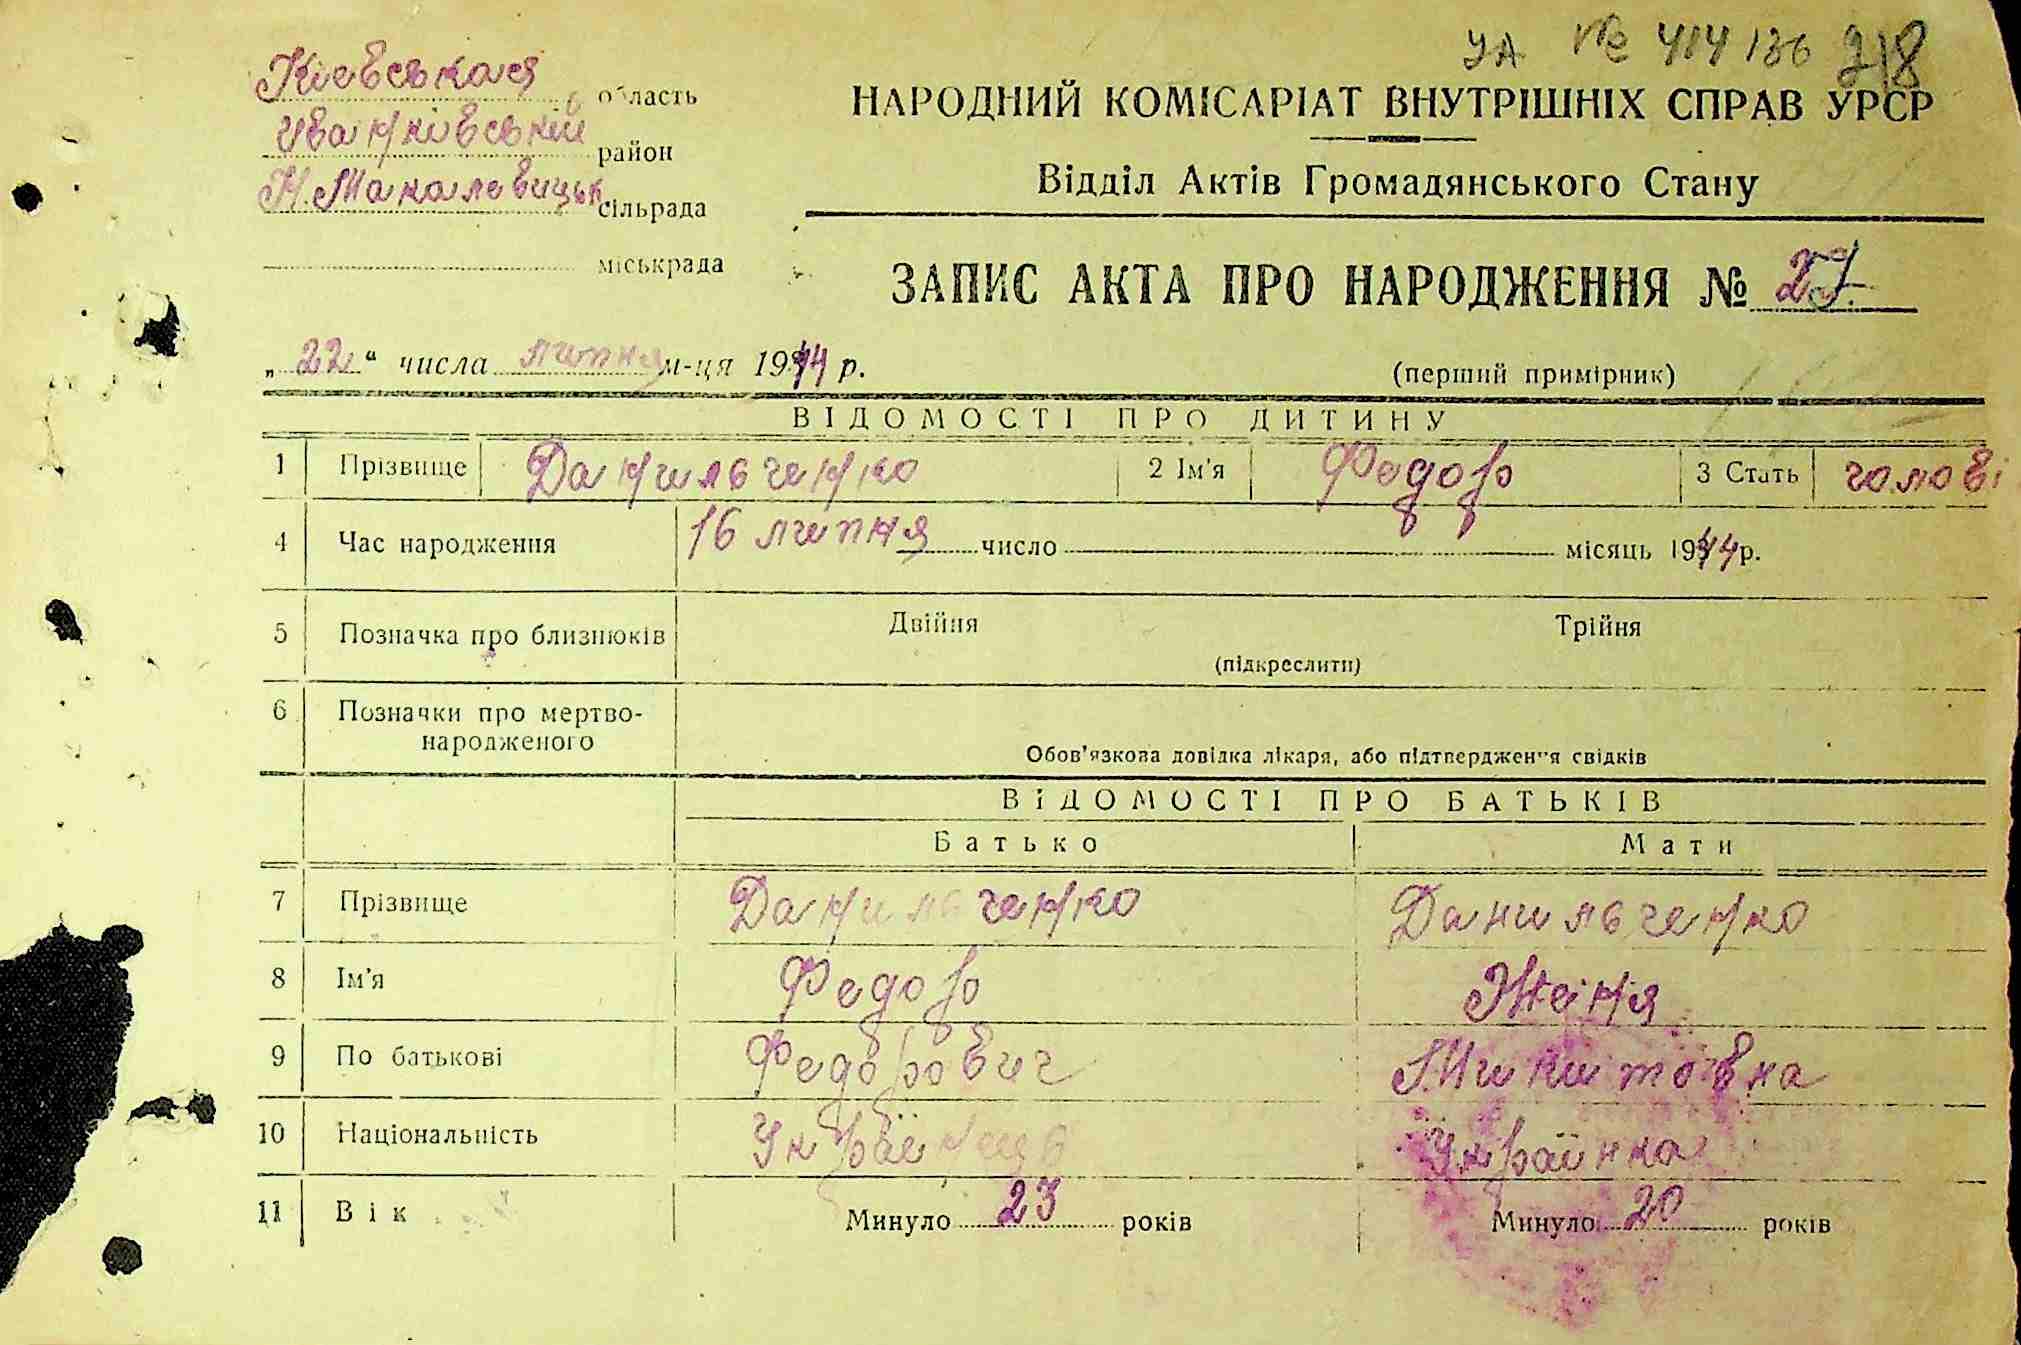 УА № 414136 218
Кіевськая область
Иванківський район
Н.Макалевицьк сільрада
міськрада
НАРОДНИЙ КОМІСАРІАТ ВНУТРІШНІХ СПРАВ УРСР
Відділ Актів Громадянського Стану
ЗАПИС АКТА ПРО НАРОДЖЕННЯ № 27
„22“ числа липня м-ця 1944 р.
(перший примірник)
ВІДОМОСТІ ПРО ДИТИНУ
1 Прізвище Данильченко 2 Ім'я Федор 3 Стать чолові
4 Час народження 16 липня число місяць 1944 р.
5 Позначка про близнюків Двійня Трійня
(підкреслити)
6 Позначки про мертво-
народженого
Обов'язкова довідка лікаря, або підтвердження свідків
ВІДОМОСТІ ПРО БАТЬКІВ
Батько Мати
7 Прізвище Данильченко Данильченко
8 Ім'я Федор Женя
9 По батькові Федорович Микитовна
10 Національність Українець Українка
11 Вік Минуло 23 років Минуло 20 років